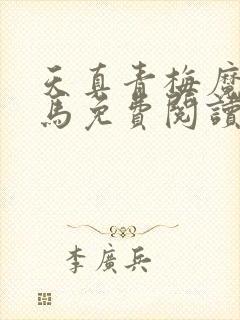 天真青梅魔
馬免費閱讀
李廣兵